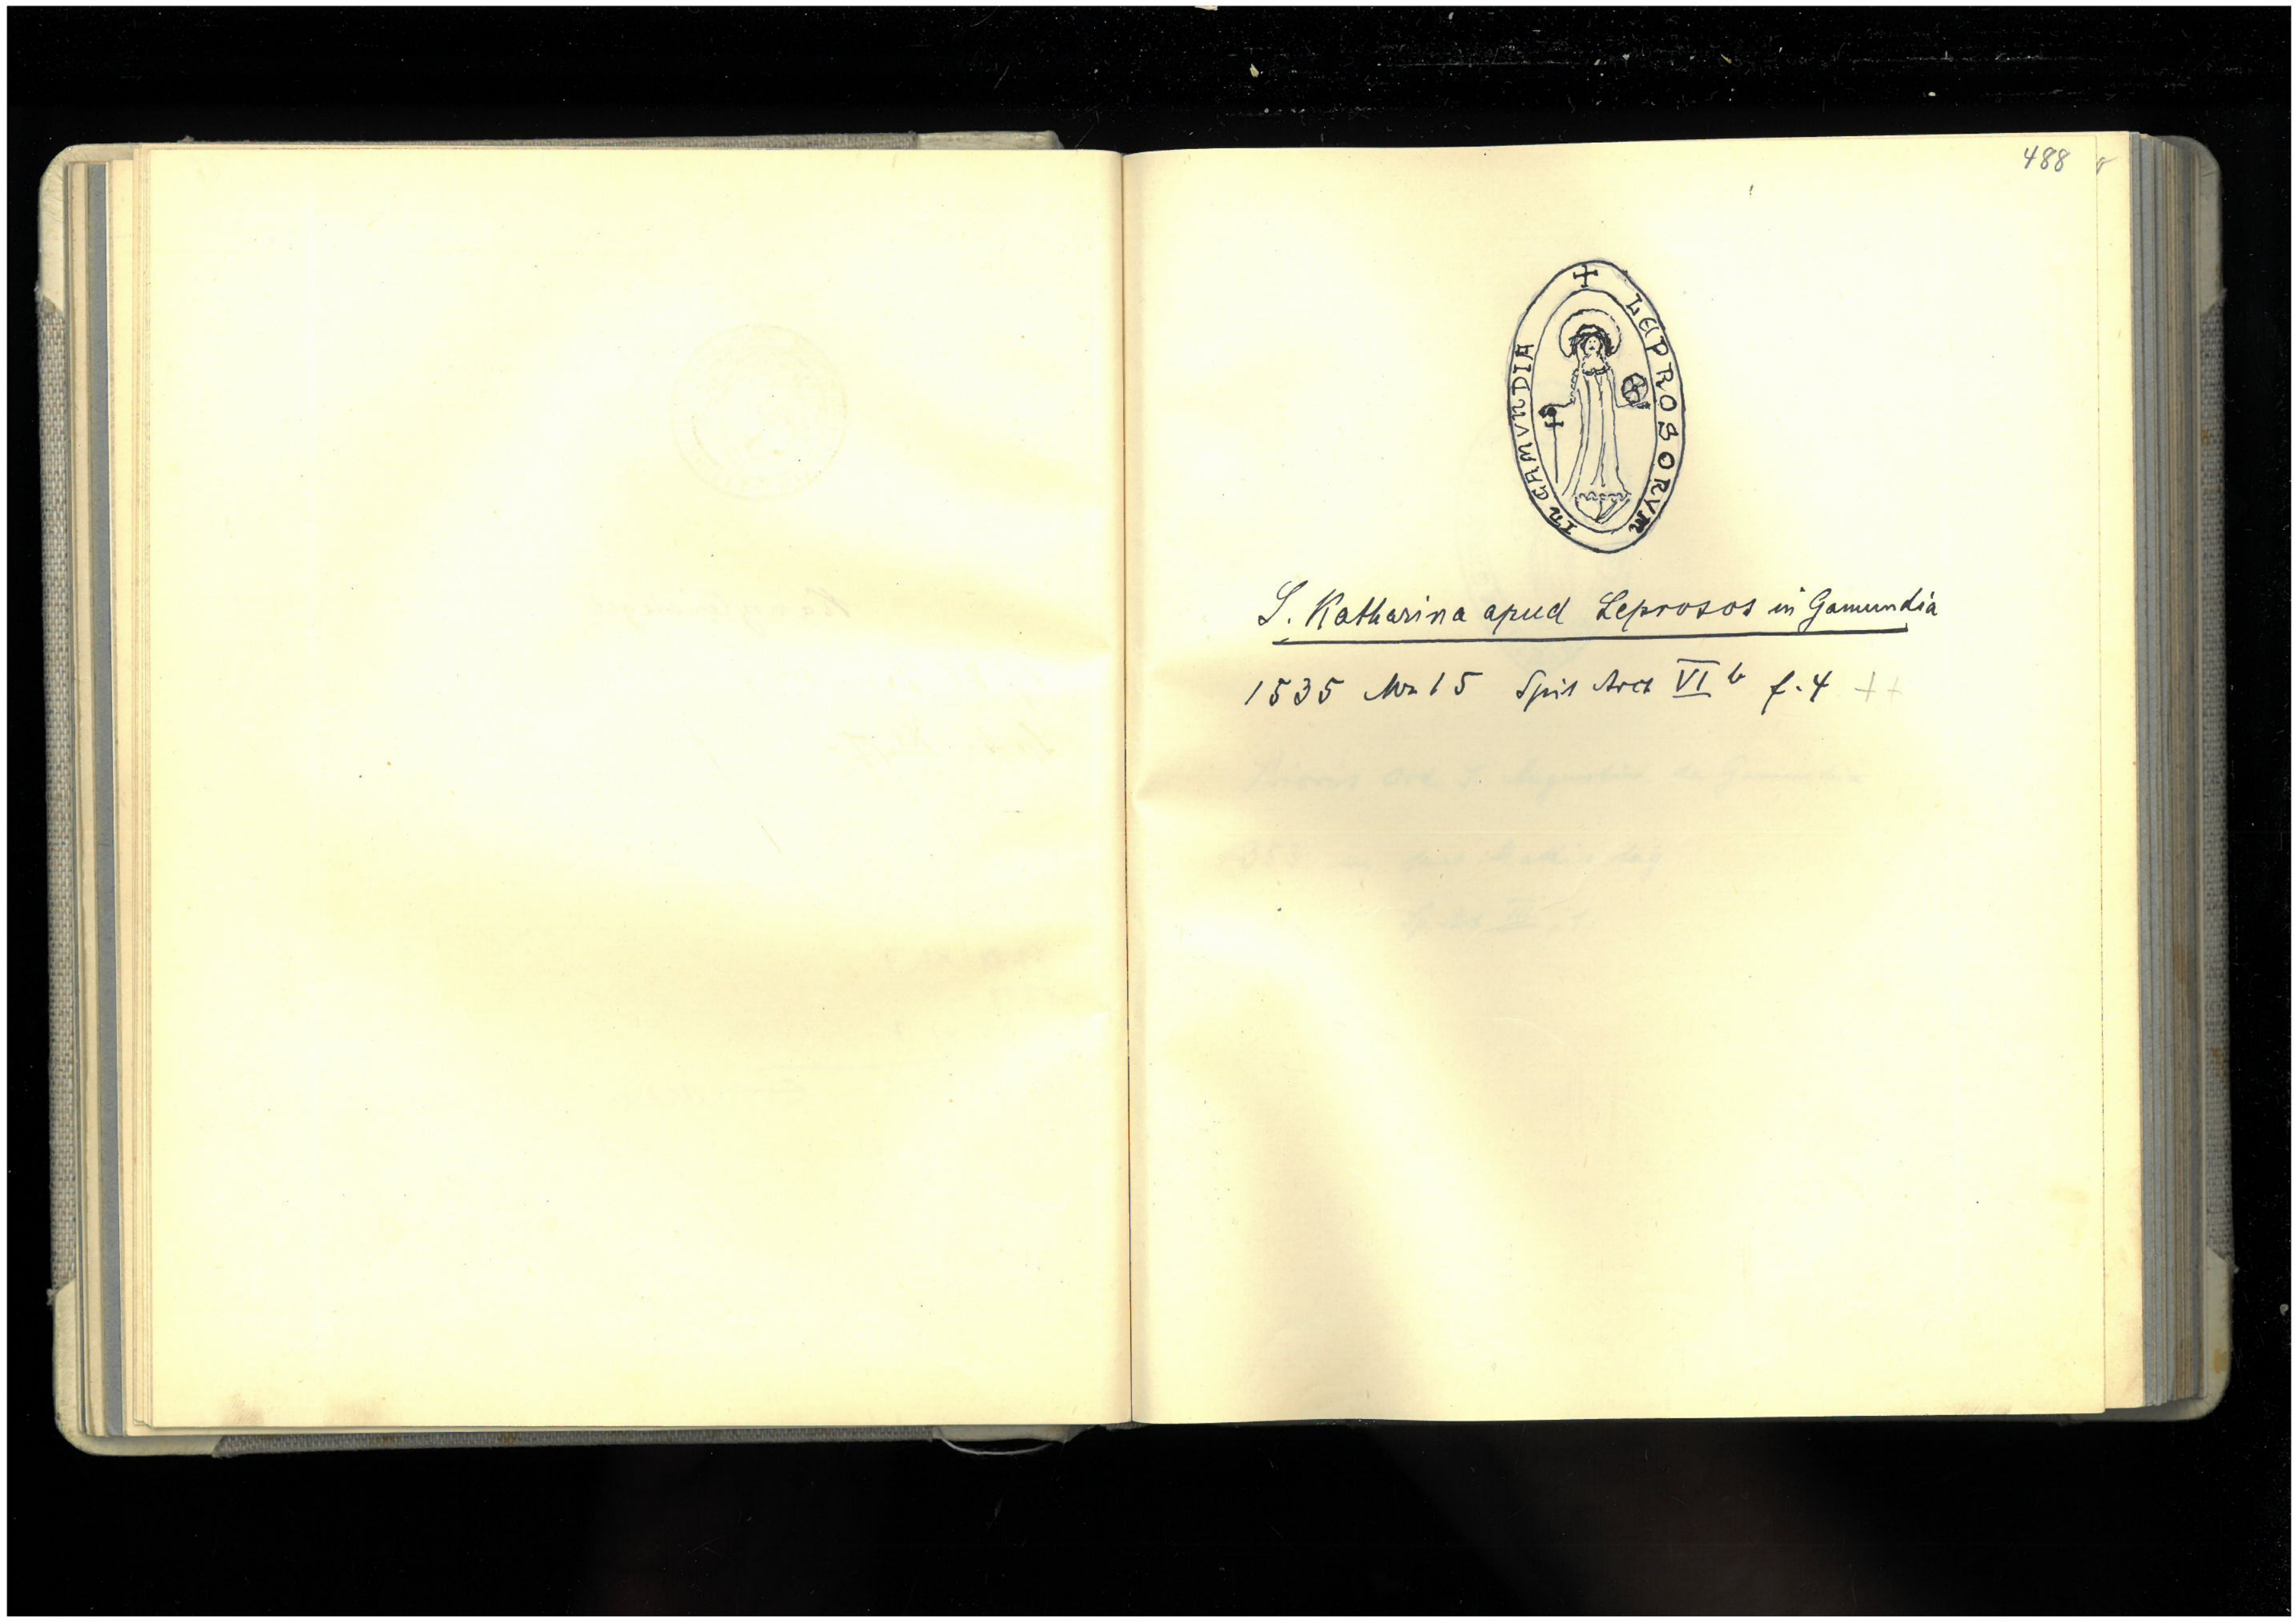 488
+ LEPROSORVM IN GAMVNDIA
S. Katharina apud Leprosos in Gamundia
1535 Mz 15 Spit Arch VI b f. 4 ++